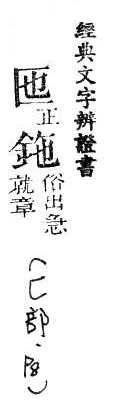 經典文字辨證書
匜正鉇俗出急就章
(匚部·P8)